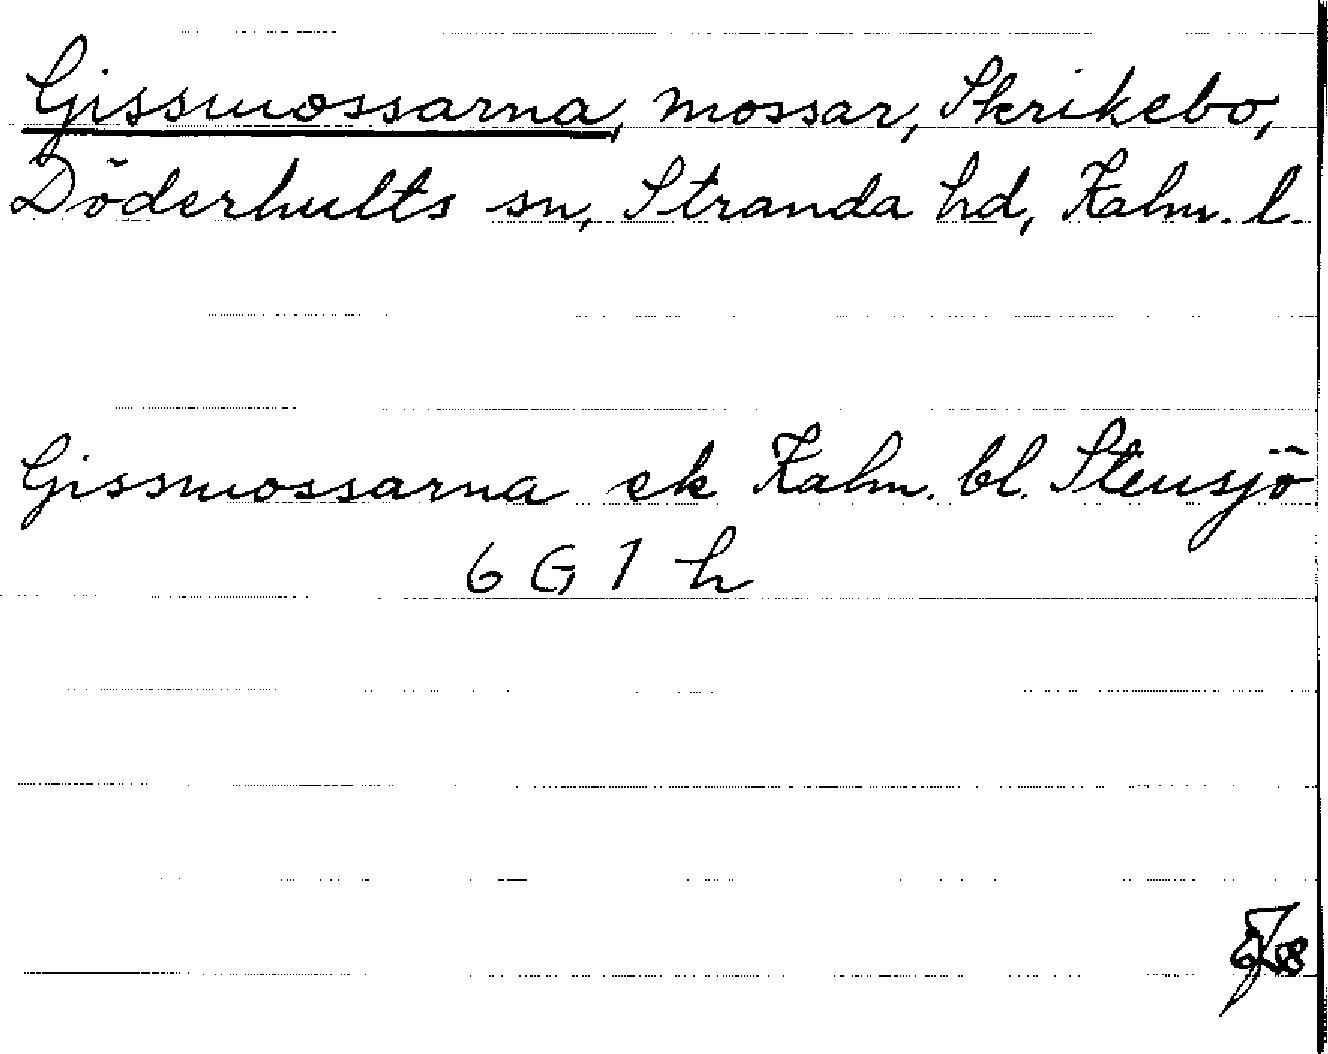 Gissmossarna, mossar, Skrikebo,
Döderhults sn, Stranda hd, Kalm. l.
Gissmossarna ek Kalm. bl. Stensjö
6 G 1 h